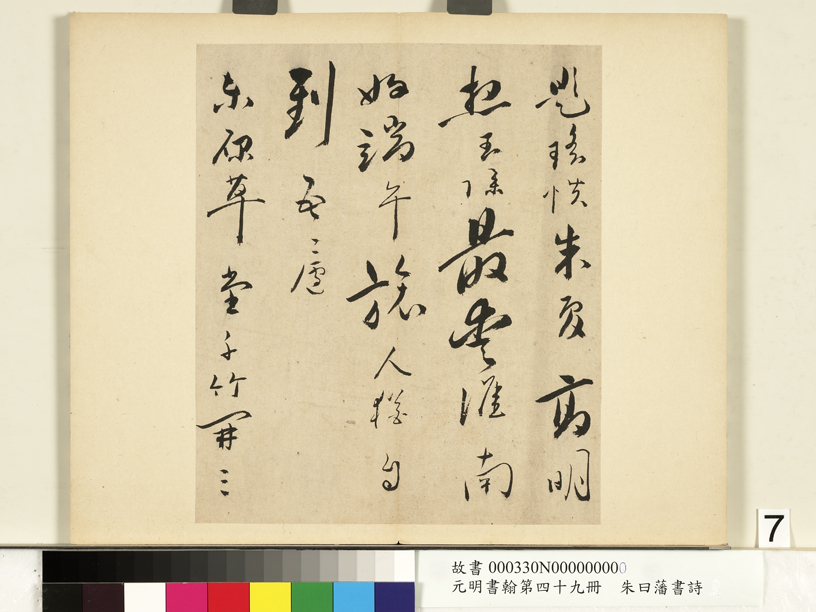 瑤帙朱夏高明
玉除最愛淮南
好端午旅人猶自
到吾廬
東原草堂千竹開三
7
故書 000330N000000000
元明書翰第四十九冊　朱曰藩書詩